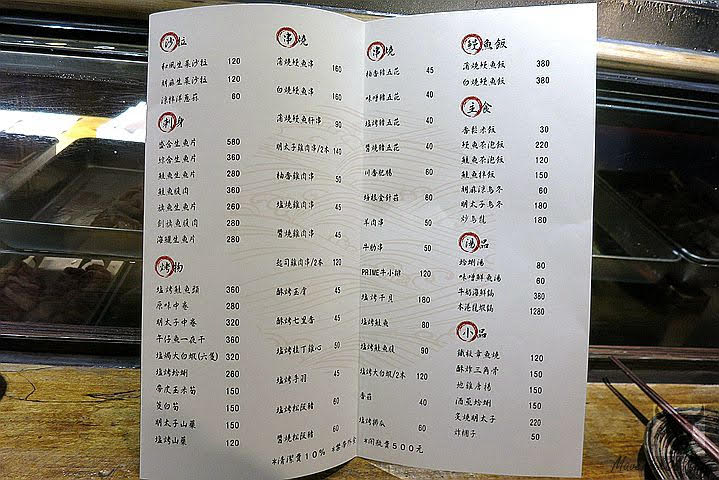 沙拉
和風生菜沙拉 120
胡麻生菜沙拉 120
涼拌洋蔥 60
刺身
盛合生魚片 580
綜合生魚片 360
鮭魚生魚片 280
鮭魚腹肉 360
旗魚生魚片 260
劍旗魚腹肉 280
海鱺生魚片 280
烤物
塩烤鮭魚頭 360
原味中卷 280
明太子中卷 320
午仔魚一夜干 360
塩焗大白蝦(六隻) 320
塩烤蛤蜊 280
帶皮玉米筍 150
茭白筍 150
明太子山藥 150
塩烤山藥 120
串燒
蒲燒鰻魚串 160
白燒鰻魚串 160
蒲燒鰻魚肝串 90
明太子雞肉串/2本 140
柚香雞肉串 50
塩燒雞肉串 45
醬燒雞肉串 45
起司雞肉串/2本 120
酥烤豆腐 45
酥烤七里香 45
塩烤拉丁雞心 50
塩烤手羽 45
塩烤松阪豬 60
醬燒松阪豬 60
*清潔費10% *禁帶外食 *開瓶費500元
串燒
柚香豬五花 45
味噌豬五花 40
塩烤豬五花 40
醬燒豬五花 40
川香肥腸 60
培根金針菇 60
羊肉串 50
牛肋串 50
PRIME牛小排 120
塩烤干貝 180
塩烤鮭魚 80
塩烤鮭魚腹 90
塩烤大白蝦/2本 120
香菇 40
塩烤櫛瓜 60
鰻魚飯
蒲燒鰻魚飯 380
白燒鰻魚飯 380
主食
香鬆米飯 30
鰻魚茶泡飯 220
鮭魚茶泡飯 120
鮭魚拌飯 150
胡麻涼烏冬 60
明太子烏冬 180
炒烏龍 180
湯品
蛤蜊湯 80
味噌鮮魚湯 60
牛奶海鮮鍋 380
本港龍蝦鍋 1280
小品
鐵板章魚燒 120
酥炸三角骨 150
地雞唐揚 150
酒蒸蛤蜊 150
炙燒明太子 220
炸柳子 50